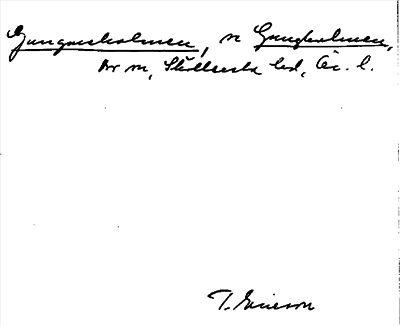 Gungnesholmen, n Gungholmen,
Ar m, Skållersta hd, Ör. l.
T. Ericson